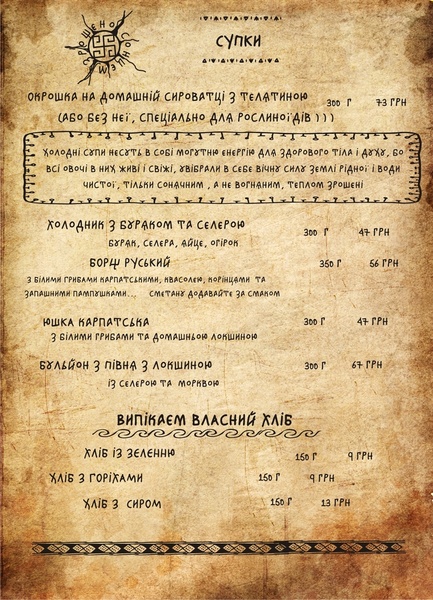 ЗРОШЕНО СОНЦЕМ
СУПКИ
ОКРОШКА НА ДОМАШНІЙ СИРОВАТЦІ З ТЕЛЯТИНОЮ 300 Г 73 ГРН
(АБО БЕЗ НЕЇ, СПЕЦІАЛЬНО ДЛЯ РОСЛИНОЇДІВ )))
ХОЛОДНІ СУПИ НЕСУТЬ В СОБІ МОГУТНЮ ЕНЕРГІЮ ДЛЯ ЗДОРОВОГО ТІЛА І ДУХУ, БО
ВСІ ОВОЧІ В НИХ ЖИВІ І СВІЖІ, УВІБРАЛИ В СЕБЕ ВІЧНУ СИЛУ ЗЕМЛІ РІДНОЇ І ВОДИ
ЧИСТОЇ, ТІЛЬКИ СОНЯЧНИМ , А НЕ ВОГНЯНИМ, ТЕПЛОМ ЗРОШЕНІ
ХОЛОДНИК З БУРЯКОМ ТА СЕЛЕРОЮ 300 Г 47 ГРН
БУРЯК, СЕЛЕРА, ЯЙЦЕ, ОГІРОК
БОРЩ РУСЬКИЙ 350 Г 56 ГРН
З БІЛИМИ ГРИБАМИ КАРПАТСЬКИМИ, КВАСОЛЕЮ, КОРІНЦЯМИ ТА
ЗАПАШНИМИ ПАМПУШКАМИ... СМЕТАНУ ДОДАВАЙТЕ ЗА СМАКОМ
ЮШКА КАРПАТСЬКА 300 Г 47 ГРН
З БІЛИМИ ГРИБАМИ ТА ДОМАШНЬОЮ ЛОКШИНОЮ
БУЛЬЙОН З ПІВНЯ З ЛОКШИНОЮ 300 Г 67 ГРН
ІЗ СЕЛЕРОЮ ТА МОРКВОЮ
ВИПІКАЄМ ВЛАСНИЙ ХЛІБ
ХЛІБ ІЗ ЗЕЛЕННЮ 150 Г 9 ГРН
ХЛІБ З ГОРІХАМИ 150 Г 9 ГРН
ХЛІБ З СИРОМ 150 Г 13 ГРН